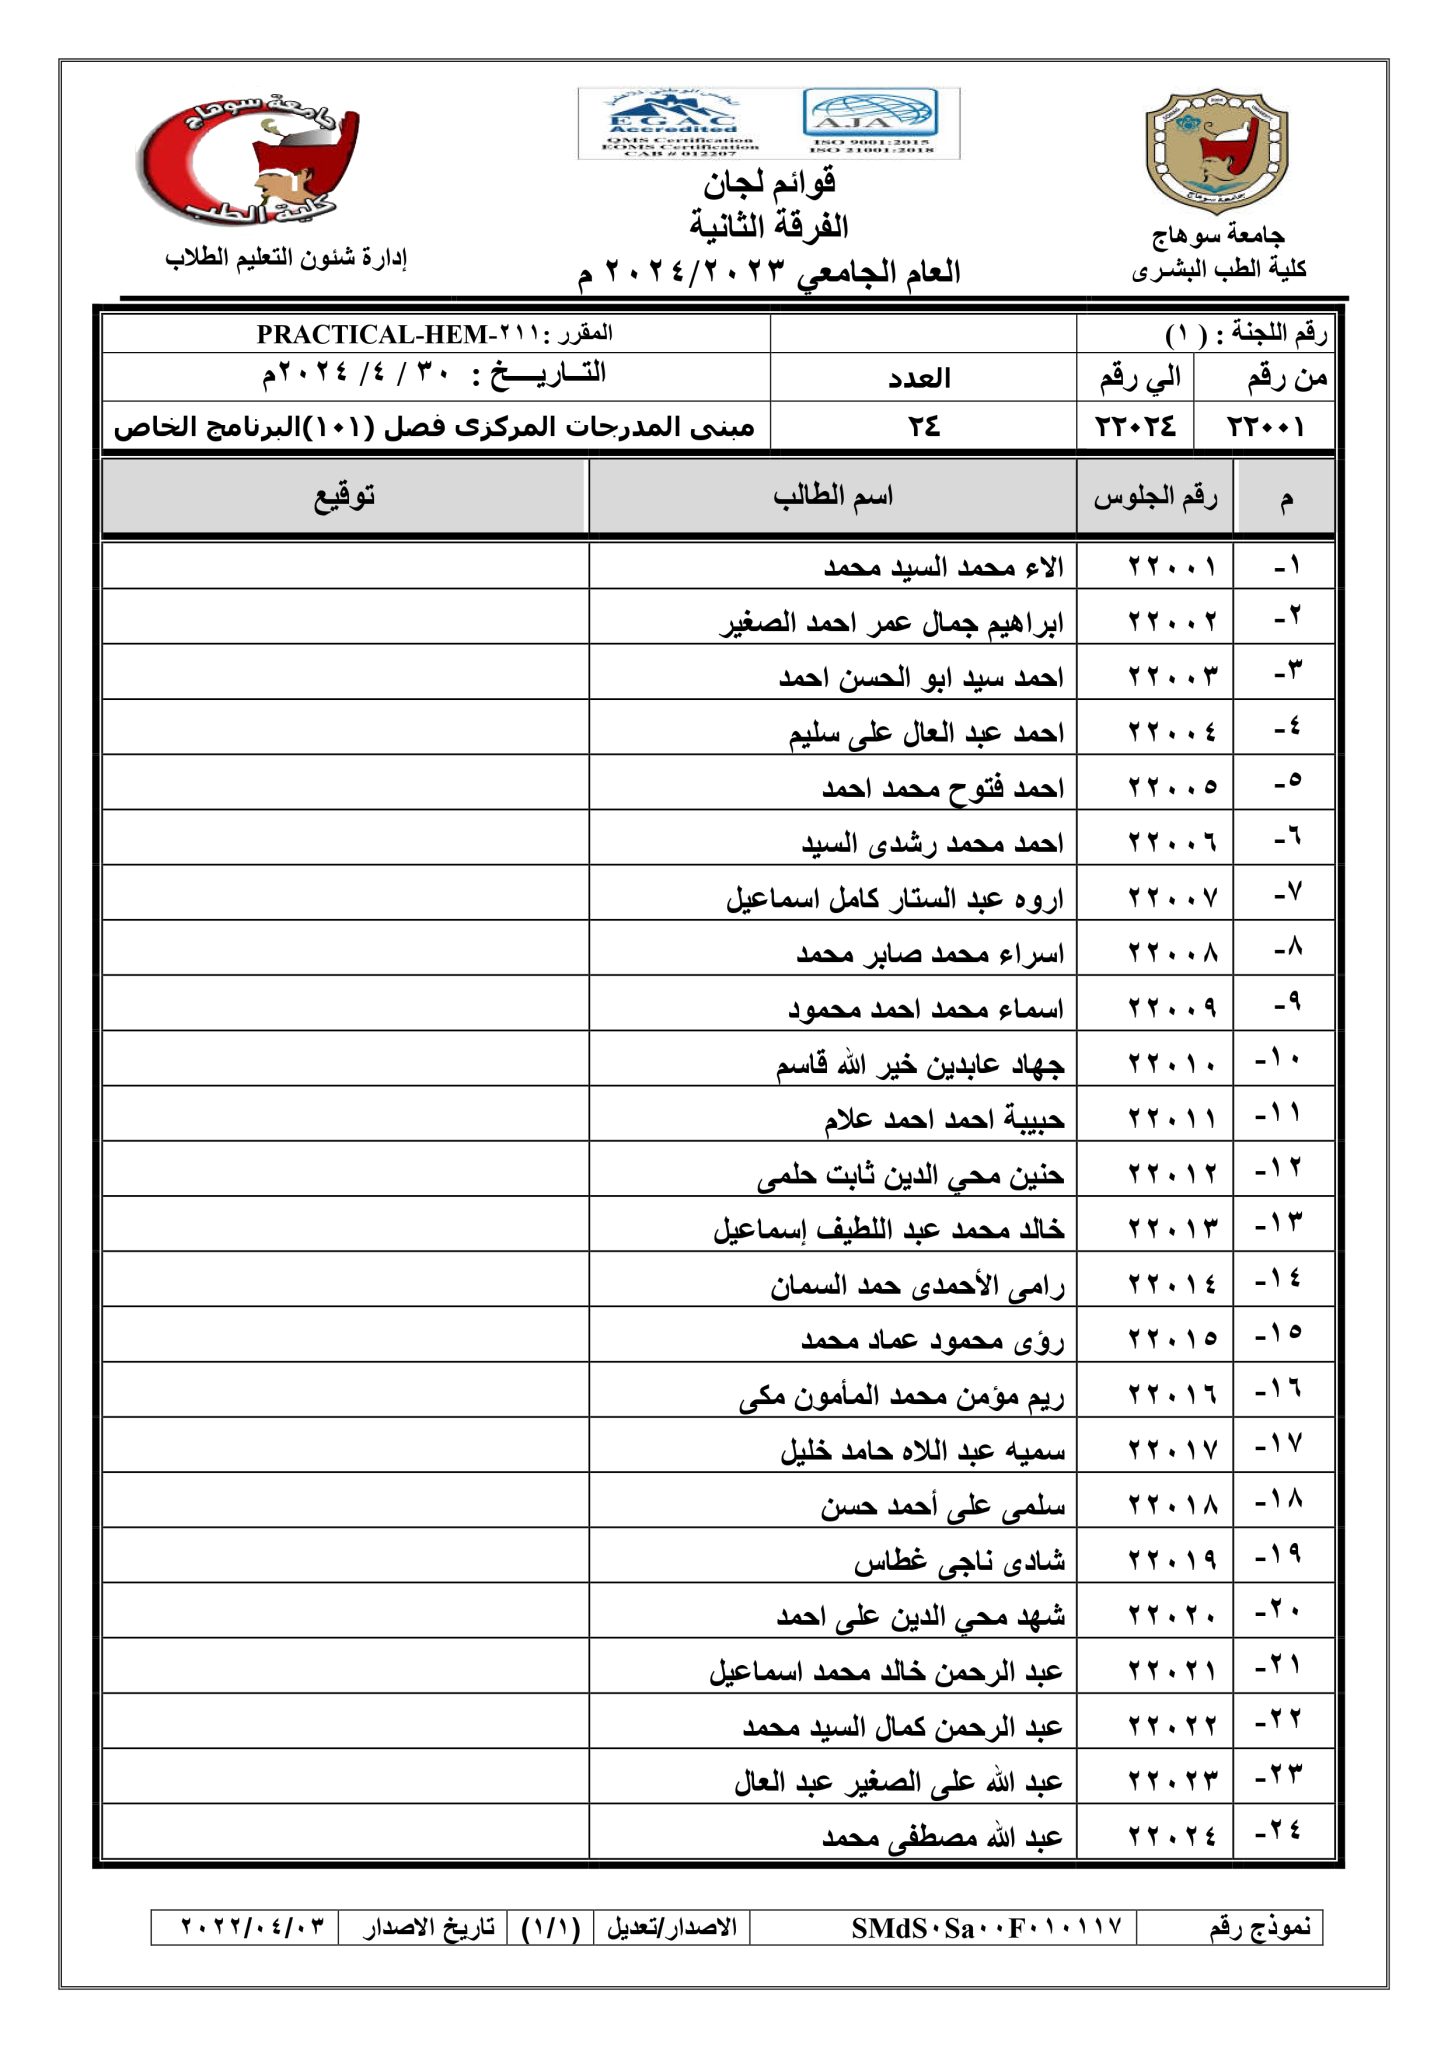 جامعة سوهاج
كلية الطب
إدارة شئون التعليم الطلاب
EGAC
Accredited
QMS Certification
EOMS Certification
CAB # 012207
AJA
ISO 9001:2015
ISO 21001:2018
قوائم لجان
الفرقة الثانية
العام الجامعي ٢٠٢٤/٢٠٢٣ م
جامعة سوهاج
جامعة سوهاج
كلية الطب البشرى
رقم اللجنة : ( ١) المقرر :PRACTICAL-HEM-٢١١
من رقم الي رقم العدد التــاريــــخ : ٣٠ / ٤/ ٢٠٢٤م
٢٢٠٠١ ٢٢٠٢٤ ٢٤ مبنى المدرجات المركزى فصل (١٠١)البرنامج الخاص
م رقم الجلوس اسم الطالب توقيع
١- ٢٢٠٠١ الاء محمد السيد محمد
٢- ٢٢٠٠٢ ابراهيم جمال عمر احمد الصغير
٣- ٢٢٠٠٣ احمد سيد ابو الحسن احمد
٤- ٢٢٠٠٤ احمد عبد العال على سليم
٥- ٢٢٠٠٥ احمد فتوح محمد احمد
٦- ٢٢٠٠٦ احمد محمد رشدى السيد
٧- ٢٢٠٠٧ اروه عبد الستار كامل اسماعيل
٨- ٢٢٠٠٨ اسراء محمد صابر محمد
٩- ٢٢٠٠٩ اسماء محمد احمد محمود
١٠- ٢٢٠١٠ جهاد عابدين خير الله قاسم
١١- ٢٢٠١١ حبيبة احمد احمد علام
١٢- ٢٢٠١٢ حنين محي الدين ثابت حلمى
١٣- ٢٢٠١٣ خالد محمد عبد اللطيف إسماعيل
١٤- ٢٢٠١٤ رامى الأحمدى حمد السمان
١٥- ٢٢٠١٥ رؤى محمود عماد محمد
١٦- ٢٢٠١٦ ريم مؤمن محمد المأمون مكى
١٧- ٢٢٠١٧ سميه عبد اللاه حامد خليل
١٨- ٢٢٠١٨ سلمى على أحمد حسن
١٩- ٢٢٠١٩ شادى ناجى غطاس
٢٠- ٢٢٠٢٠ شهد محي الدين على احمد
٢١- ٢٢٠٢١ عبد الرحمن خالد محمد اسماعيل
٢٢- ٢٢٠٢٢ عبد الرحمن كمال السيد محمد
٢٣- ٢٢٠٢٣ عبد الله على الصغير عبد العال
٢٤- ٢٢٠٢٤ عبد الله مصطفى محمد
نموذج رقم SMdS٠Sa٠٠F٠١٠١١٧ الاصدار/تعديل (١/١) تاريخ الاصدار ٢٠٢٢/٠٤/٠٣